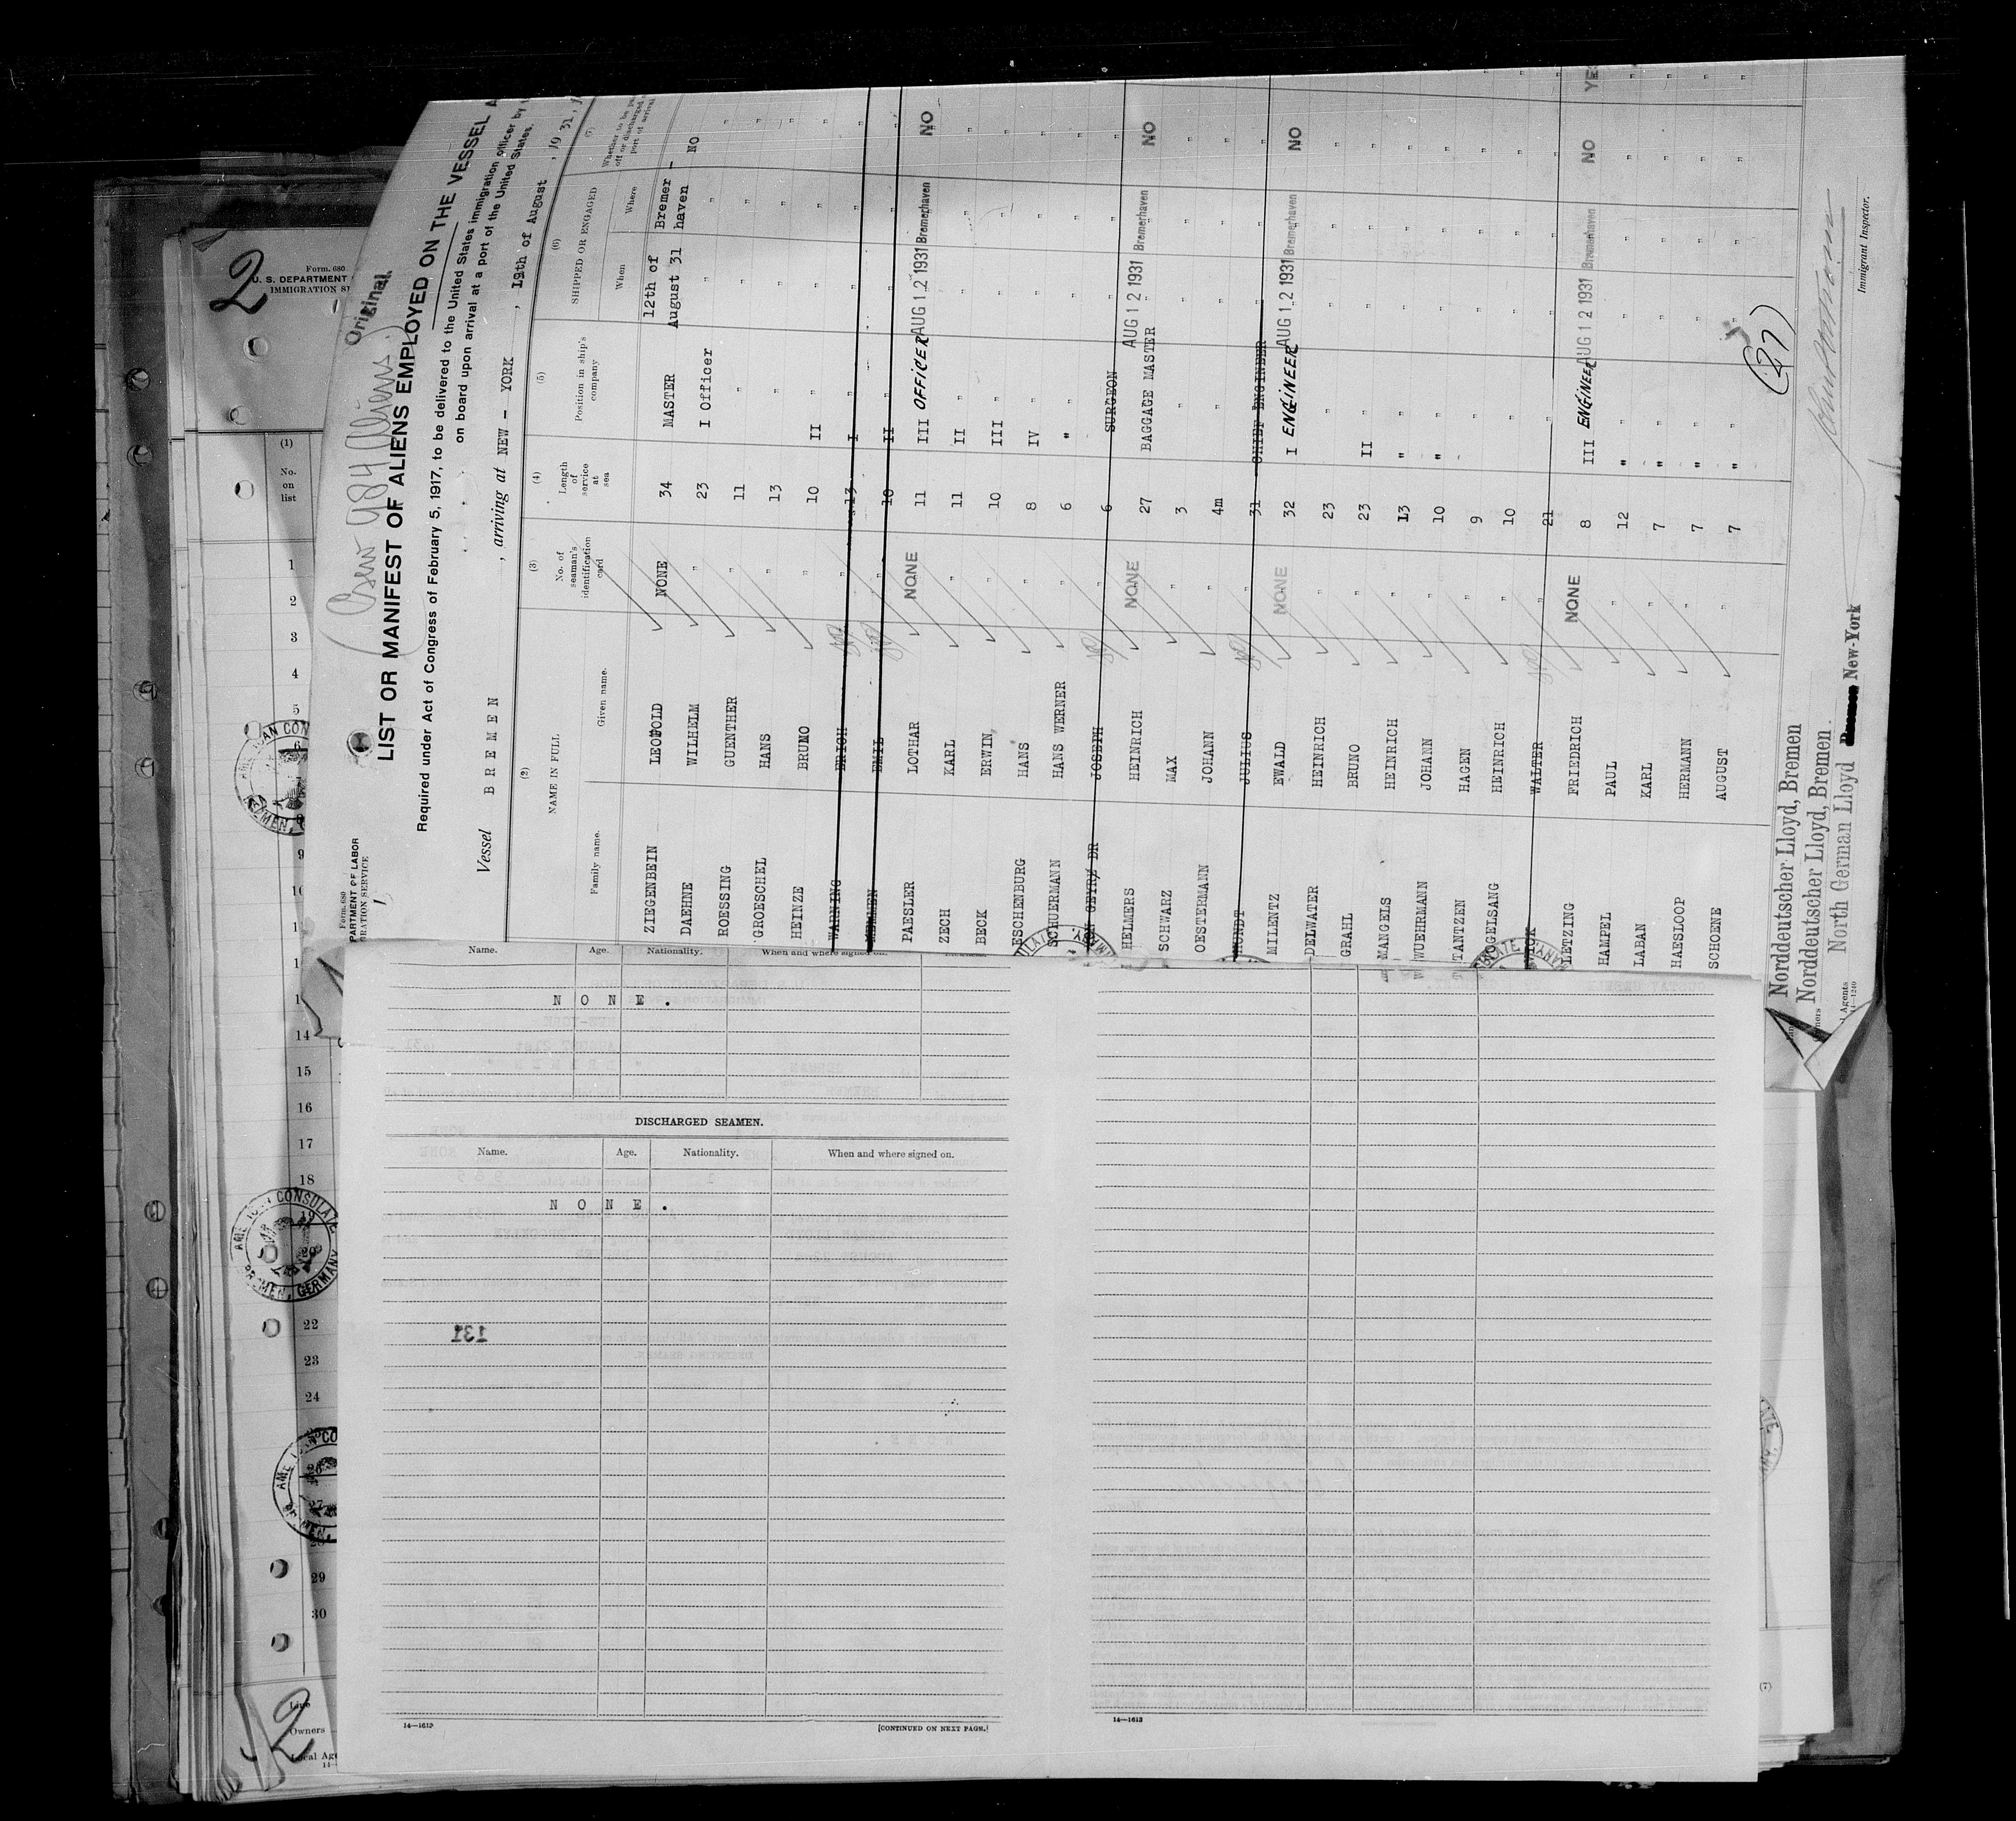 2
Form. 680
U. S. DEPARTMENT
IMMIGRATION
(1)
No.
on
list
1
2
3
4
5
6
8
9
14
15
16
17
18
19
20
22
23
24
26
27
28
29
30
AMERICAN CONSULATE
BREMEN, GERMANY
2
Line
Owners
Local
Original
(Crew 984 Aliens)
Form. 680
PARTMENT OF LABOR
GRATION SERVICE
1
LIST OR MANIFEST OF ALIENS EMPLOYED ON THE VESSEL A
Required under Act of Congress of February 5, 1917, to be delivered to the United States immigration officer by
on board upon arrival at a port of the United States.
Vessel B R E M E N , arriving at NEW - YORK , 19th of August , 1931,
(2) (3) (4) (5) (6) (7)
NAME IN FULL
Family name. Given name.
No. of seaman's identification card
Length of service at sea
Position in ship's company
SHIPPED OR ENGAGED
When Where
Whether to be
off or discharged
port of arrival
12th of Bremer -
ZIEGENBEIN LEOPOLD NONE 34 MASTER August 31 haven NO
DAEHNE WILHELM " 23 I Officer " " "
ROESSING GUENTHER " 11 " " " "
GROESCHEL HANS " 13 " " " "
HEINZE BRUNO " 10 II " " " "
WARNING ERICH " 13 I " " "
MEHMEN EMIL " 10 II " " "
PAESLER LOTHAR NONE 11 III OFFICER AUG 12 1931 Bremerhaven NO
ZECH KARL " 11 II " " " "
BECK ERWIN " 10 III " " " "
ESCHENBURG HANS " 8 IV " " " "
SCHUERMANN HANS WERNER " 6 " " " " "
GEYRZ DR JOSEPH " 6 SURGEON " " "
HELMERS HEINRICH NONE 27 BAGGAGE MASTER AUG 12 1931 Bremerhaven NO
SCHWARZ MAX " 3 " " " "
OESTERMANN JOHANN " 4m " " " "
MUNDT JULIUS " 31 CHIEF ENGINEER " " "
MILENTZ EWALD NONE 32 I ENGINEER AUG 12 1931 Bremerhaven NO
DELWATER HEINRICH " 23 " " " "
GRAHL BRUNO " 23 II " " " "
MANGELS HEINRICH " 13 " " " " "
WUEHRMANN JOHANN " 10 " " " " "
TANTZEN HAGEN " 9 " " " "
VOGELSANG HEINRICH " 10 " " " "
WALTER " 21 " " " "
LETZING FRIEDRICH NONE 8 III ENGINEER AUG 12 1931 Bremerhaven NO YES
HAMPEL PAUL " 12 " " " " " "
LABAN KARL " 7 " " " " " "
HAESLOOP HERMANN " 7 " " " " " "
SCHOENE AUGUST " 7 " " " " " "
(27)
Norddeutscher Lloyd, Bremen
Norddeutscher Lloyd, Bremen.
North German Lloyd New-York
Agents
14—1240
Immigrant Inspector.
Name. Age. Nationality. When and where signed on.
N O N E .
DISCHARGED SEAMEN.
Name. Age. Nationality. When and where signed on.
N O N E .
131
14—1613
[CONTINUED ON NEXT PAGE.]
14—1613
(7)